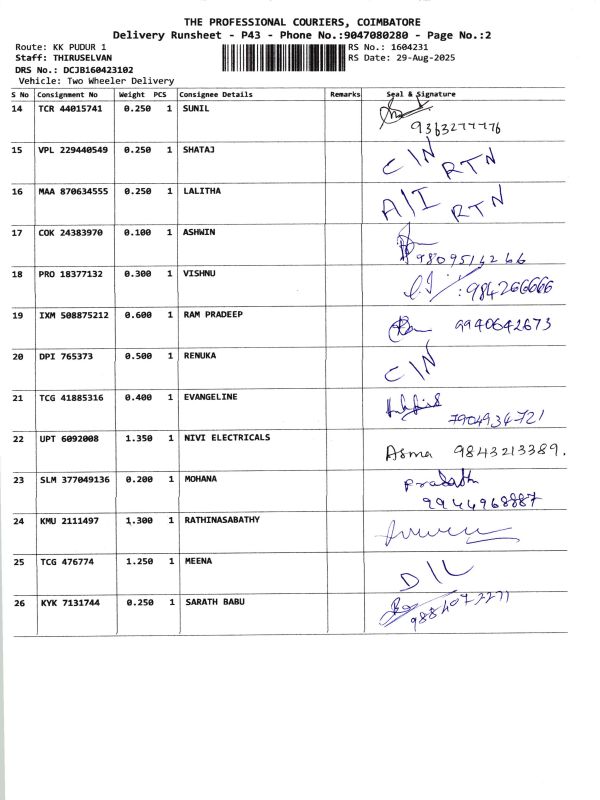 THE PROFESSIONAL COURIERS, COIMBATORE
Delivery Runsheet - P43 - Phone No.:9047080280 - Page No.:2
Route: KK PUDUR 1 RS No.: 1604231
Staff: THIRUSELVAN RS Date: 29-Aug-2025
DRS No.: DCJB160423102
Vehicle: Two Wheeler Delivery
S No Consignment No Weight PCS Consignee Details Remarks Seal & Signature
14 TCR 44015741 0.250 1 SUNIL
9363277776
15 VPL 229440549 0.250 1 SHATAJ C/N RTN
16 MAA 870634555 0.250 1 LALITHA A/I RTN
17 COK 24383970 0.100 1 ASHWIN
9809514266
18 PRO 18377132 0.300 1 VISHNU
984266666
19 IXM 508875212 0.600 1 RAM PRADEEP 9940642673
20 DPI 765373 0.500 1 RENUKA C/N
21 TCG 41885316 0.400 1 EVANGELINE
7904934721
22 UPT 6092008 1.350 1 NIVI ELECTRICALS Asma 9843213389.
23 SLM 377049136 0.200 1 MOHANA Prakash
9944968887
24 KMU 2111497 1.300 1 RATHINASABATHY
25 TCG 476774 1.250 1 MEENA D/L
26 KYK 7131744 0.250 1 SARATH BABU 9884072271